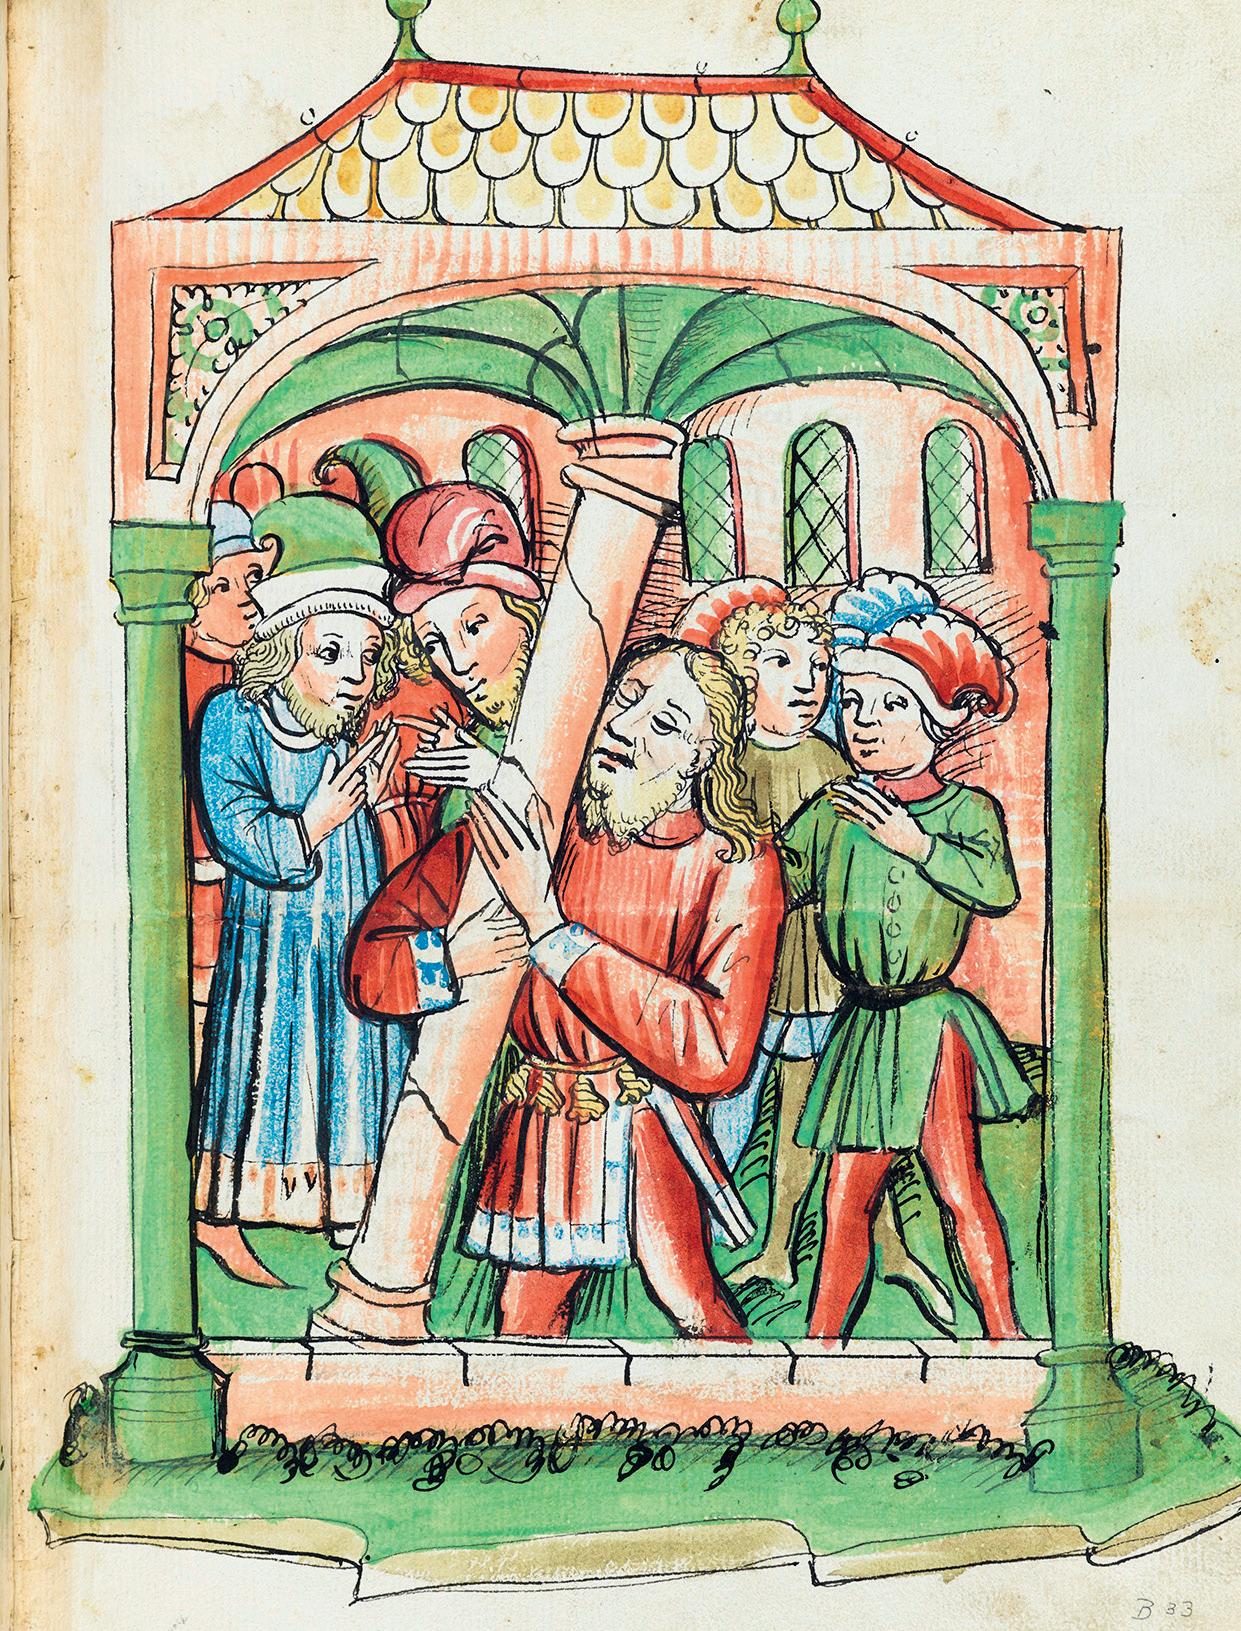 B 33